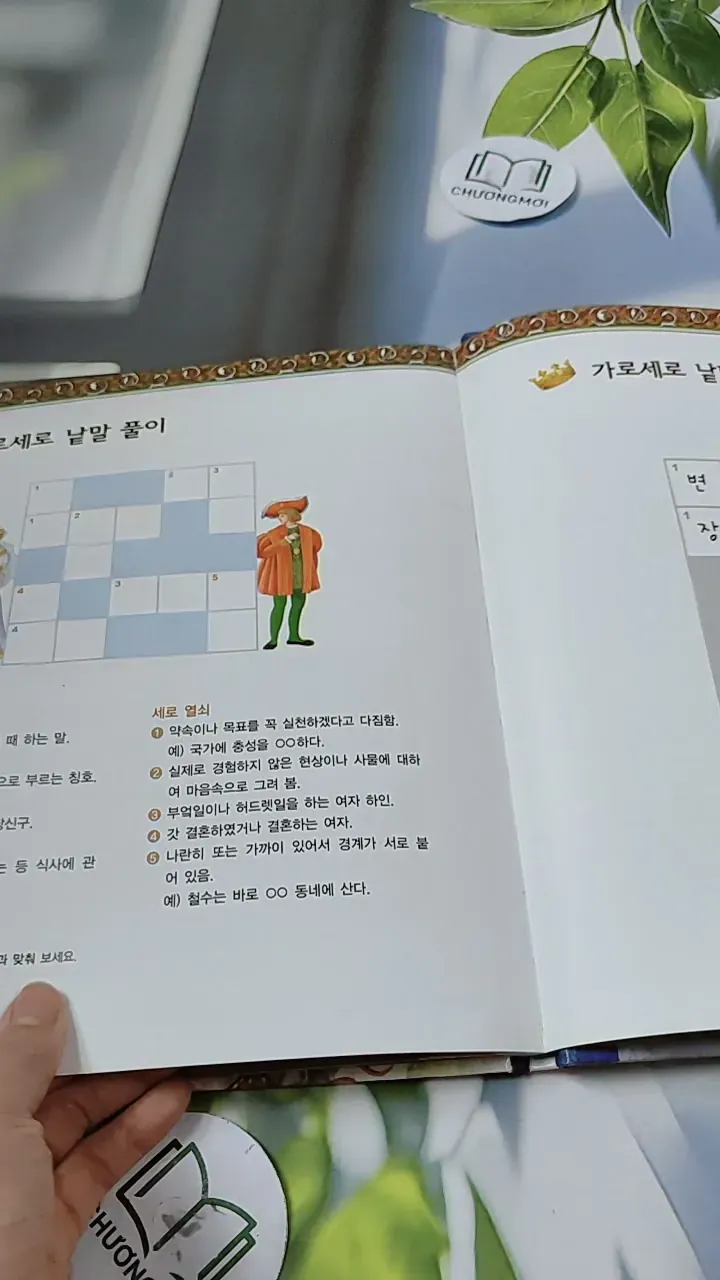 CHƯƠNGMỚI
르세로 낱말 풀이
1 2 3
1 2
4 3 5
4
때 하는 말.
으로 부르는 칭호.
장신구.
는 등 식사에 관
과 맞춰 보세요.
세로 열쇠
1 약속이나 목표를 꼭 실천하겠다고 다짐함.
예) 국가에 충성을 ○○하다.
2 실제로 경험하지 않은 현상이나 사물에 대하
여 마음속으로 그려 봄.
3 부엌일이나 허드렛일을 하는 여자 하인.
4 갓 결혼하였거나 결혼하는 여자.
5 나란히 또는 가까이 있어서 경계가 서로 붙
어 있음.
예) 철수는 바로 ○○ 동네에 산다.
가로세로 낱
1 변
1 장